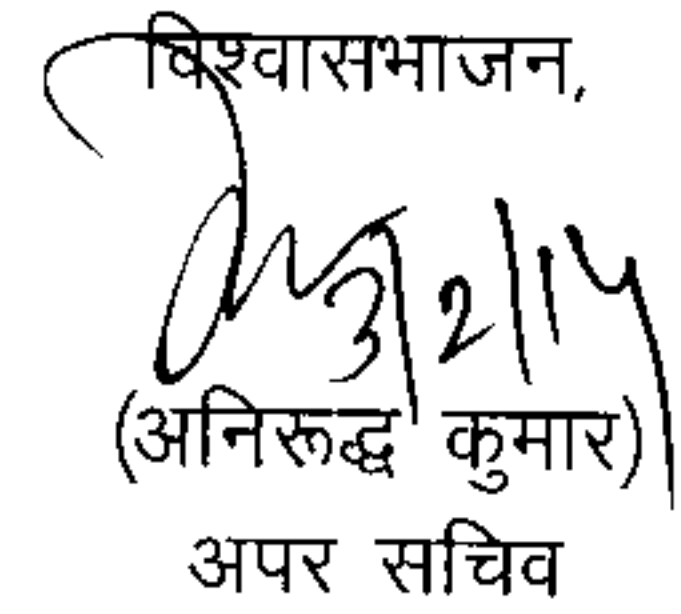 विश्वासभाजन,
3/2/14
(अनिरूद्ध कुमार)
अपर सचिव